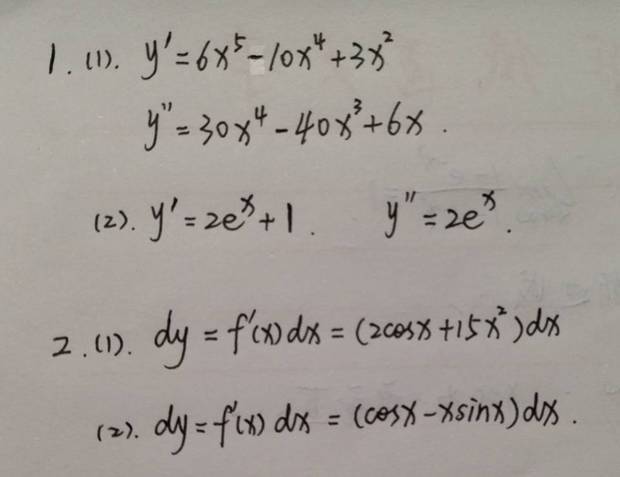 1. (1). y' = 6x⁵ - 10x⁴ + 3x²
y'' = 30x⁴ - 40x³ + 6x .
(2). y' = 2eˣ + 1 . y'' = 2eˣ .
2. (1). dy = f'(x) dx = (2cosx + 15x²) dx
(2). dy = f'(x) dx = (cosx - xsinx) dx .